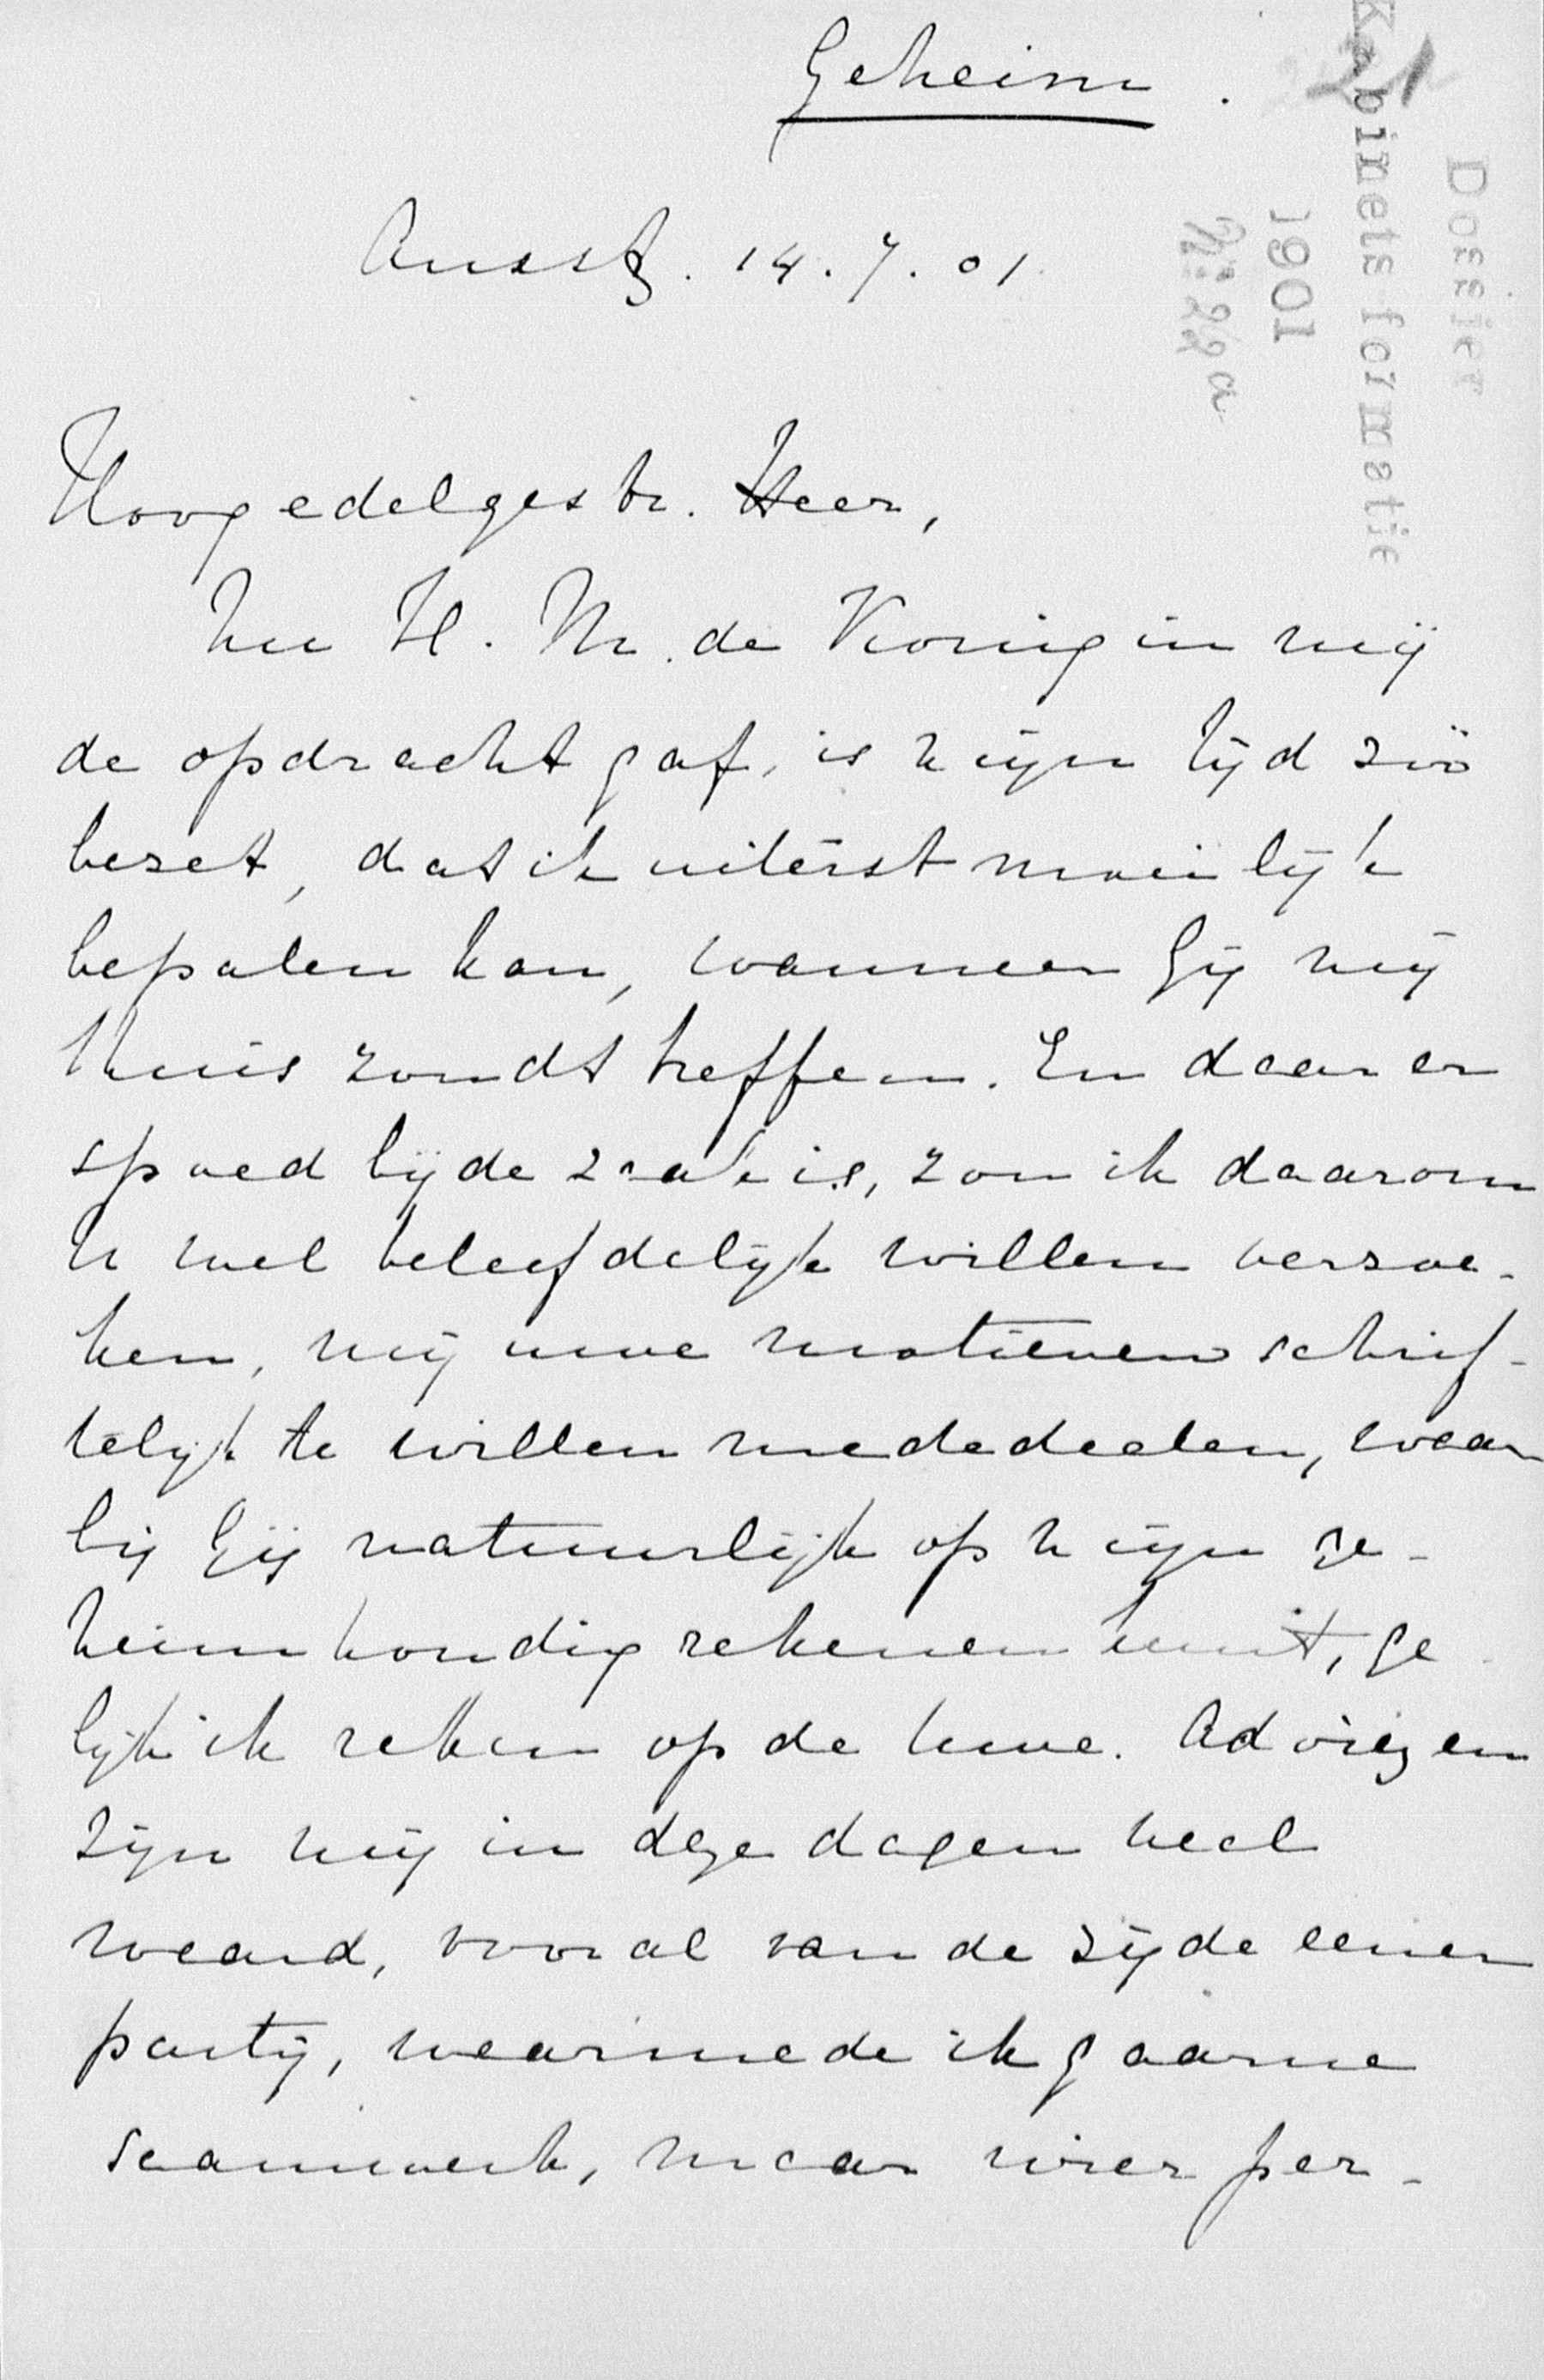 Geheim.
Dossier
Kabinetsformatie
1901
No 22a
Amst. 14.7.01.
Hoogedelgestr. Heer,
Nu H. M. de Koningin mij
de opdracht gaf, is mijn tijd zóó
bezet, dat ik uiterst moeilijk
bepalen kan, wanneer Gij mij
thuis zoudt treffen. En daar er
spoed bij de zaak is, zou ik daarom
U wel beleefdelijk willen verzoe-
ken, mij uwe motieven schrif-
telijk te willen mededeelen, waar
bij Gij natuurlijk op mijn ge-
heimhouding rekenen kunt, ge
lijk ik reken op de uwe. Adviezen
zijn mij in deze dagen veel
waard, vooral van de zijde eener
partij, waarmede ik gaarne
saamwerk, maar wier per-